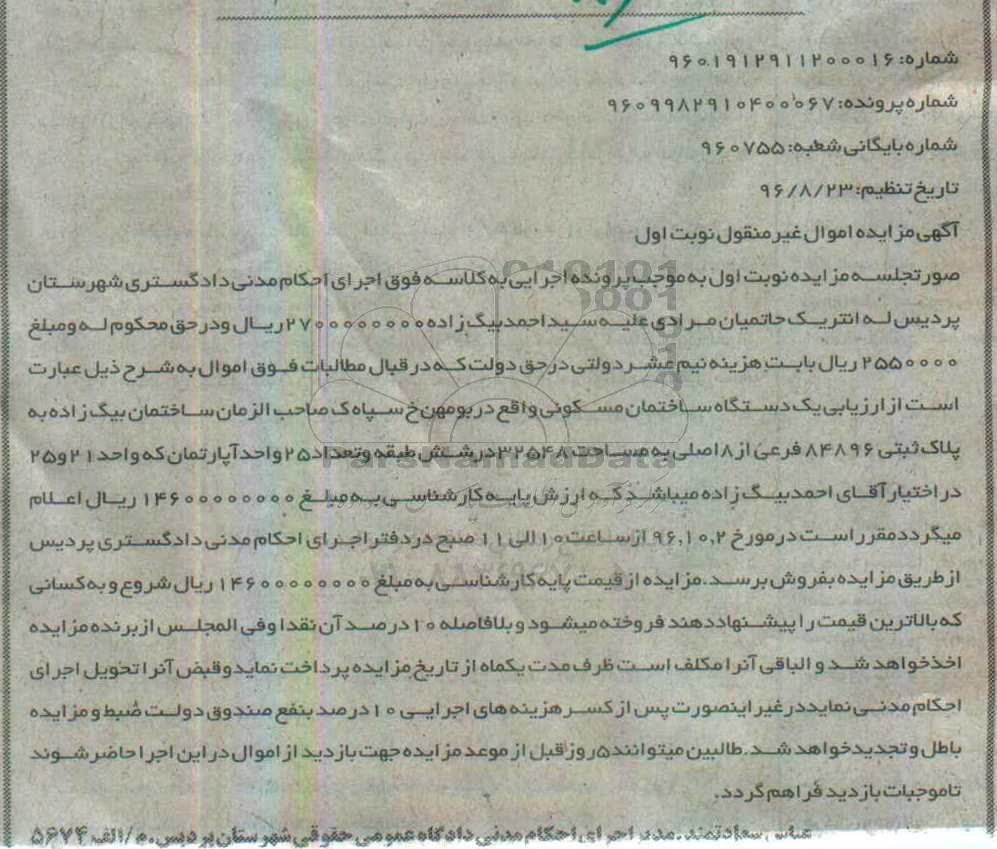 شماره: ۹۶۰۱۹۱۲۹۱۱۲۰۰۰۱۶
شماره پرونده: ۹۶۰۹۹۸۲۹۱۰۴۰۰۰۶۷
شماره بایگانی شعبه: ۹۶۰۷۵۵
تاریخ تنظیم: ۹۶/۸/۲۳
آگهی مزایده اموال غیرمنقول نوبت اول
صورتجلسه مزایده نوبت اول به موجب پرونده اجرایی به کلاسه فوق اجرای احکام مدنی دادگستری شهرستان
پردیس له انتریک حاتمیان مرادی علیه سید احمد بیگ زاده ۲۷۰۰۰۰۰۰۰۰۰ ریال ودر حق محکوم له ومبلغ
۲۵۵۰۰۰۰ ریال بابت هزینه نیم عشر دولتی در حق دولت که در قبال مطالبات فوق اموال به شرح ذیل عبارت
است از ارزیابی یک دستگاه ساختمان مسکونی واقع در بومهن خ سپاه ک صاحب الزمان ساختمان بیگ زاده به
پلاک ثبتی ۸۴۸۹۶ فرعی از ۸ اصلی به مساحت ۳۲۵۴۸ در شش طبقه وتعداد ۲۵ واحد آپارتمان که واحد ۲۱ و ۲۵
در اختیار آقای احمد بیگ زاده میباشد که ارزش پایه کارشناسی به مبلغ ۱۴۶۰۰۰۰۰۰۰۰ ریال اعلام
میگردد مقرر است در مورخ ۹۶,۱۰,۲ از ساعت ۱۰ الی ۱۱ صبح در دفتر اجرای احکام مدنی دادگستری پردیس
از طریق مزایده بفروش برسد. مزایده از قیمت پایه کارشناسی به مبلغ ۱۴۶۰۰۰۰۰۰۰۰ ریال شروع و به کسانی
که بالاترین قیمت را پیشنهاد دهند فروخته میشود و بلافاصله ۱۰ درصد آن نقدا وفی المجلس از برنده مزایده
اخذ خواهد شد و الباقی آنرا مکلف است ظرف مدت یکماه از تاریخ مزایده پرداخت نماید وقبض آنرا تحویل اجرای
احکام مدنی نماید در غیر اینصورت پس از کسر هزینه های اجرایی ۱۰ درصد بنفع صندوق دولت ضبط و مزایده
باطل و تجدید خواهد شد. طالبین میتوانند ۵ روز قبل از موعد مزایده جهت بازدید از اموال در این اجرا حاضر شوند
تا موجبات بازدید فراهم گردد.
عباس سعادتمند. مدیر اجرای احکام مدنی دادگاه عمومی حقوقی شهرستان پردیس. م/الف ۵۶۷۴
ParsNamadData